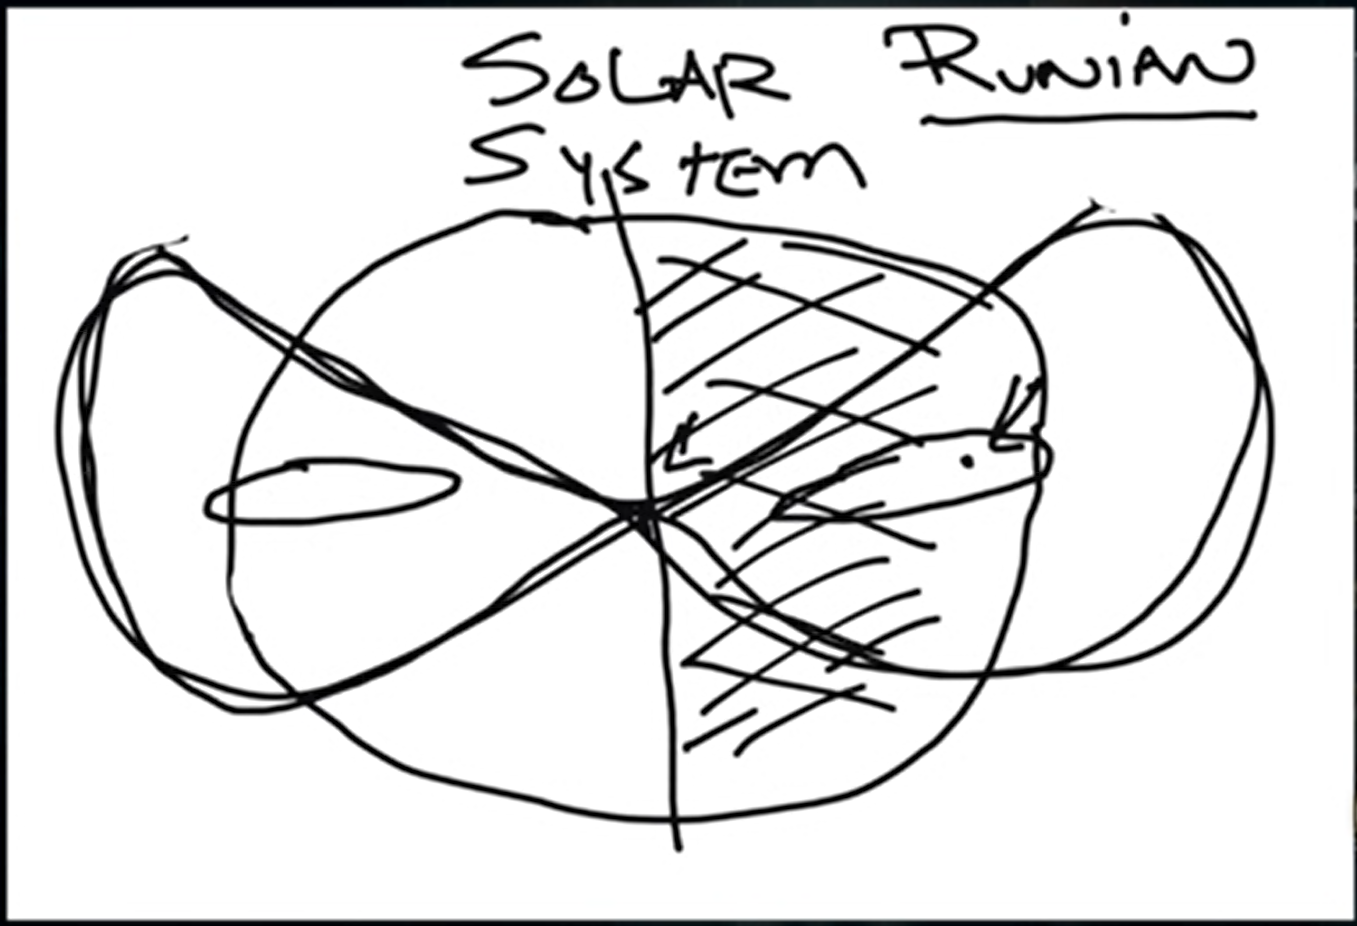 SOLAR
SYSTEM
RUNIAN